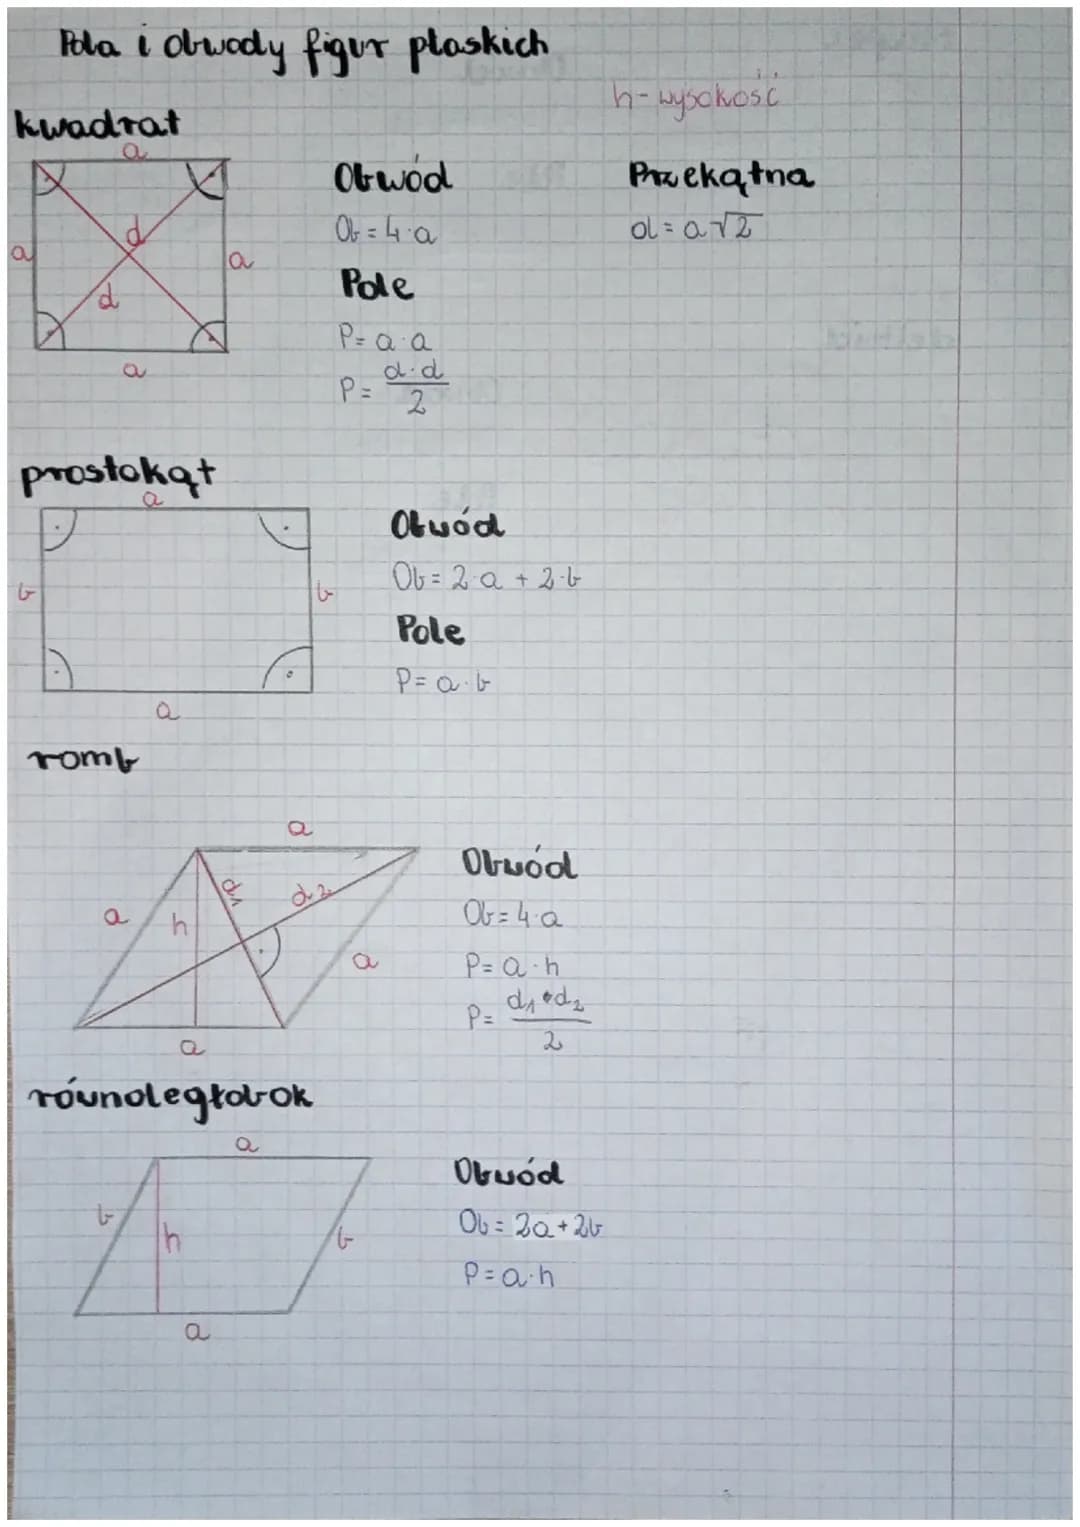 Pola i obwody figur płaskich
h - wysokość
kwadrat
a
a
a
d
d
a
Obwód
Ob = 4·a
Pole
P = a·a
P = d·d / 2
Przekątna
d = a√2
prostokąt
a
b
b
a
Obwód
Ob = 2·a + 2·b
Pole
P = a·b
romb
a
a
h
d₁
d₂
a
a
Obwód
Ob = 4·a
P = a·h
P = d₁·d₂ / 2
równoległobok
a
b
h
b
a
Obwód
Ob = 2a + 2b
P = a·h